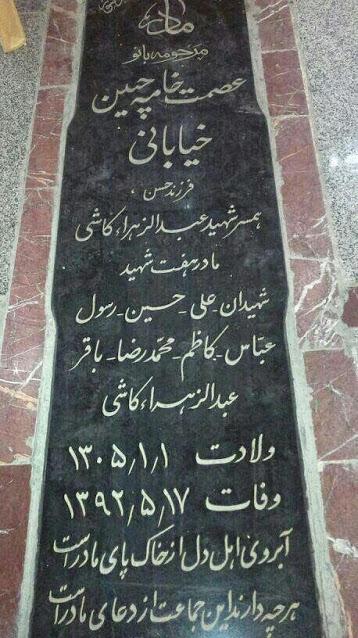 مادر
مرحومه بانو
عصمت خامه چین
خیابانی
فرزند حسن
همسر شهید عبدالزهراء کاشی
مادر هفت شهید
شهیدان علی - حسین - رسول
عباس - کاظم - محمدرضا - باقر
عبدالزهراء کاشی
ولادت ۱۳۰۵/۱/۱
وفات ۱۳۹۲/۵/۱۷
آبروی اهل دل از خاک پای مادر است
هر چه دارند این جماعت از دعای مادر است